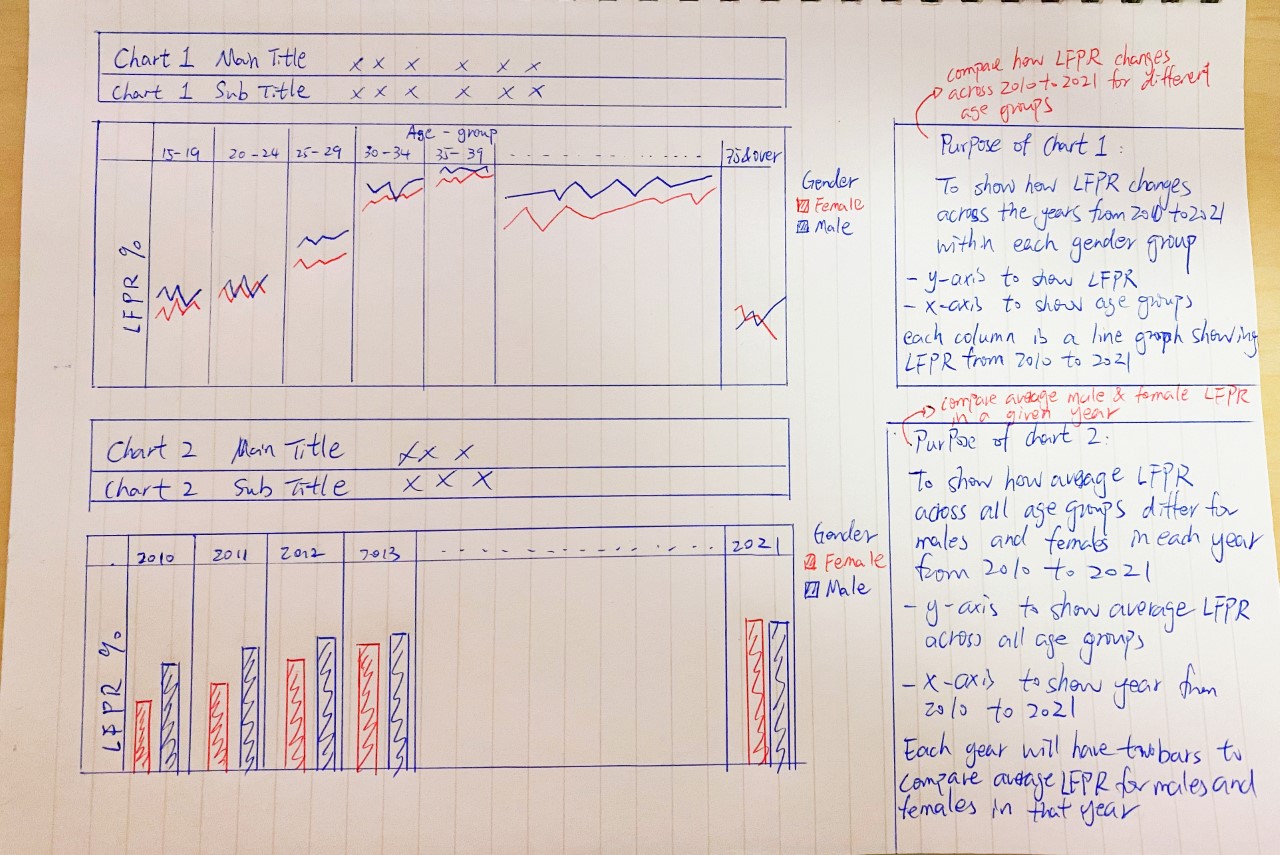 Chart 1 Main Title x x x x x x
Chart 1 Sub Title x x x x x x
Age - group
15-19 20-24 25-29 30-34 35-39 . . . . . . . . . . 75&over
LFPR %
Gender
Female
Male
compare how LFPR changes
across 2010 to 2021 for different
age groups
Purpose of Chart 1 :
To show how LFPR changes
across the years from 2010 to 2021
within each gender group
- y-axis to show LFPR
- x-axis to show age groups
each column is a line graph showing
LFPR from 2010 to 2021
Chart 2 Main Title x x x
Chart 2 Sub Title x x x
2010 2011 2012 2013 . . . . . . . . . . . . 2021
LFPR %
Gender
Female
Male
compare average male & female LFPR
in a given year
Purpose of chart 2:
To show how average LFPR
across all age groups differ for
males and females in each year
from 2010 to 2021
- y-axis to show average LFPR
across all age groups
- x-axis to show year from
2010 to 2021
Each year will have two bars to
compare average LFPR for males and
females in that year